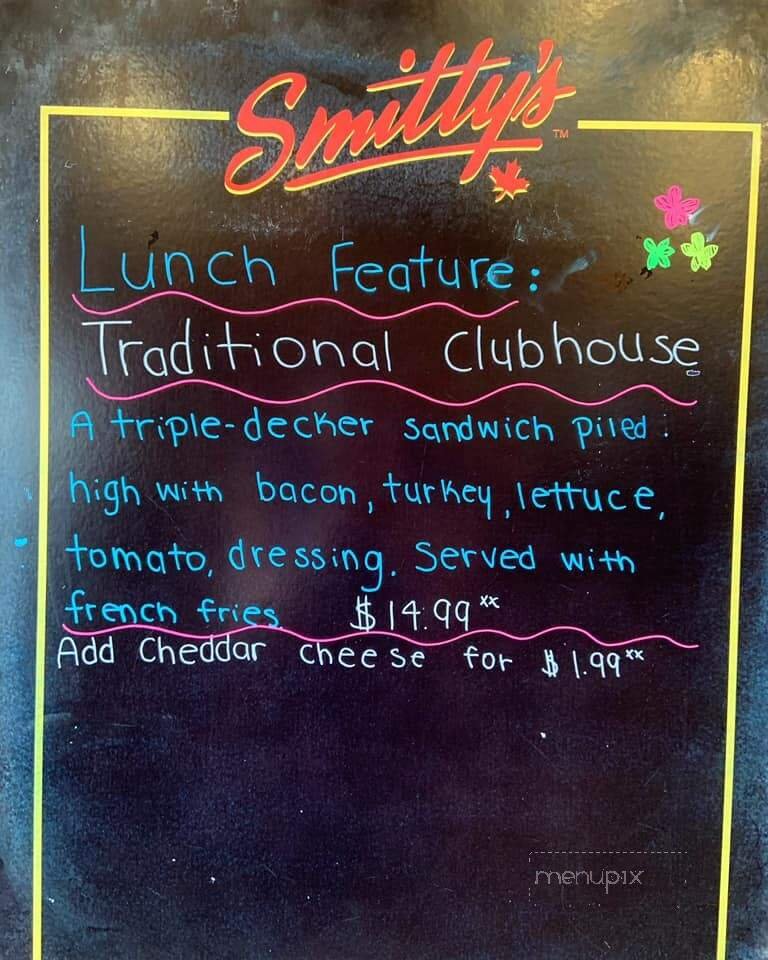 Smitty's TM
Lunch Feature:
Traditional Clubhouse
A triple-decker sandwich piled
high with bacon, turkey, lettuce,
tomato, dressing. Served with
french fries $14.99 xx
Add Cheddar cheese for $1.99 xx
menupix